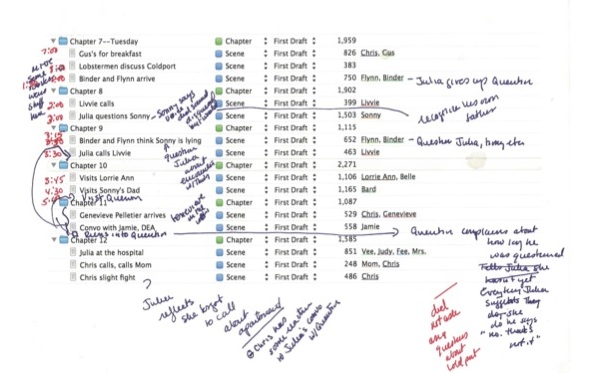 Chapter 7--Tuesday Chapter First Draft 1,959
7:00 Gus's for breakfast Scene First Draft 826 Chris, Gus
Lobstermen discuss Coldport Scene First Draft 383
Binder and Flynn arrive Scene First Draft 750 Flynn, Binder - Julia gives up Quentin
Chapter 8 Chapter First Draft 1,902
2:00 Livvie calls Scene First Draft 399 Livvie
recognize his own father
3:00 Julia questions Sonny Scene First Draft 1,503 Sonny
Sonny says
Chapter 9 Chapter First Draft 1,115
Binder and Flynn think Sonny is lying Scene First Draft 652 Flynn, Binder - Question Julia,
3:30 Julia calls Livvie Scene First Draft 463 Livvie
question Julia about
Chapter 10 Chapter First Draft 2,271
3:45 Visits Lorrie Ann Scene First Draft 1,106 Lorrie Ann, Belle
4:30 Visits Sonny's Dad Scene First Draft 1,165 Bard
Visit Quentin
Chapter 11 Chapter First Draft 1,087
Genevieve Pelletier arrives Scene First Draft 529 Chris, Genevieve
Convo with Jamie, DEA Scene First Draft 558 Jamie
into Quentin
Chapter 12 Chapter First Draft 1,585
Julia at the hospital Scene First Draft 851 Vee, Judy, Fee, Mrs.
Chris calls, calls Mom Scene First Draft 248 Mom, Chris
Chris slight fight Scene First Draft 486 Chris
Quentin complains about
how long he
was questioned
Julia
suggests they
do he says
"no. that's
not it"
?
Julia
reflects
she forgot
to call
about
apartment
Chris has
some reaction
to Julia's convo
w/Quentin
did
not ask
any
questions
about
coldport